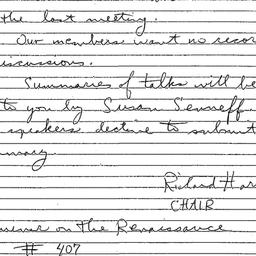 the last meeting.
Our members want no recor
iscussions.
Summaries of talks will be
to you by Susan Senneff
speakers decline to submit
mmary
Richard Har
CHAIR
on the Renaissance
# 407